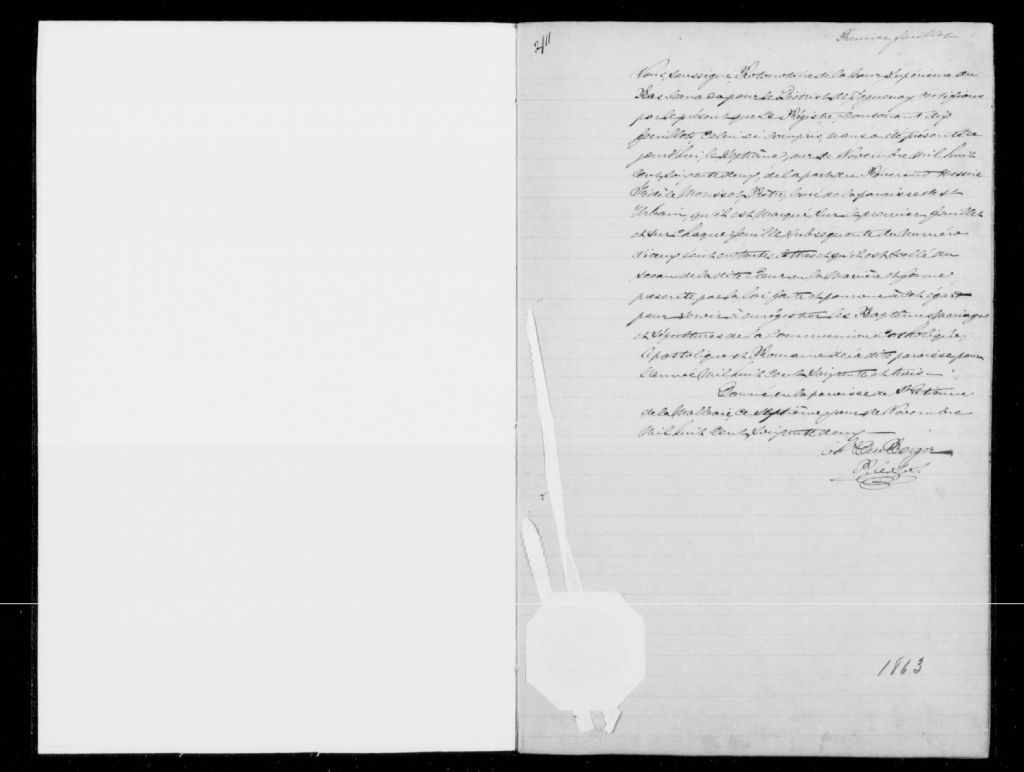 Premier feuillet
Nous, soussigné, Protonotaire de la Cour Supérieure du
Bas Canada pour le District de Saguenay certifions
par le présent que le Régistre, contenant dix
feuillets, celui ci compris, nous a été présenté ce
jourd'hui le septième jour de Novembre Mil huit
Cent Soixante deux, de la part du Révérend Messire
Prêtre, Curé de la paroisse de St
Urbain, qu'il est marqué sur le premier feuillet
et sur chaque feuillet subséquent du Numéro
d'iceux tout en toutes lettres et qu'il est scellé du
sceau de la dite Cour en la Manière et forme
prescrite par la loi faite et pourvue à cet égard
pour servir à enrégistrer les Baptêmes, Mariages
et Sépultures de la Communion Catholique,
Apostolique et Romaine de la dite paroisse pour
l'année Mil huit Cent Soixante et trois.
Donné en la paroisse de St Etienne
de la Malbaie, ce septième jour de Novembre
Mil huit Cent Soixante deux
Chs Du Berger
P.C.S.
1863